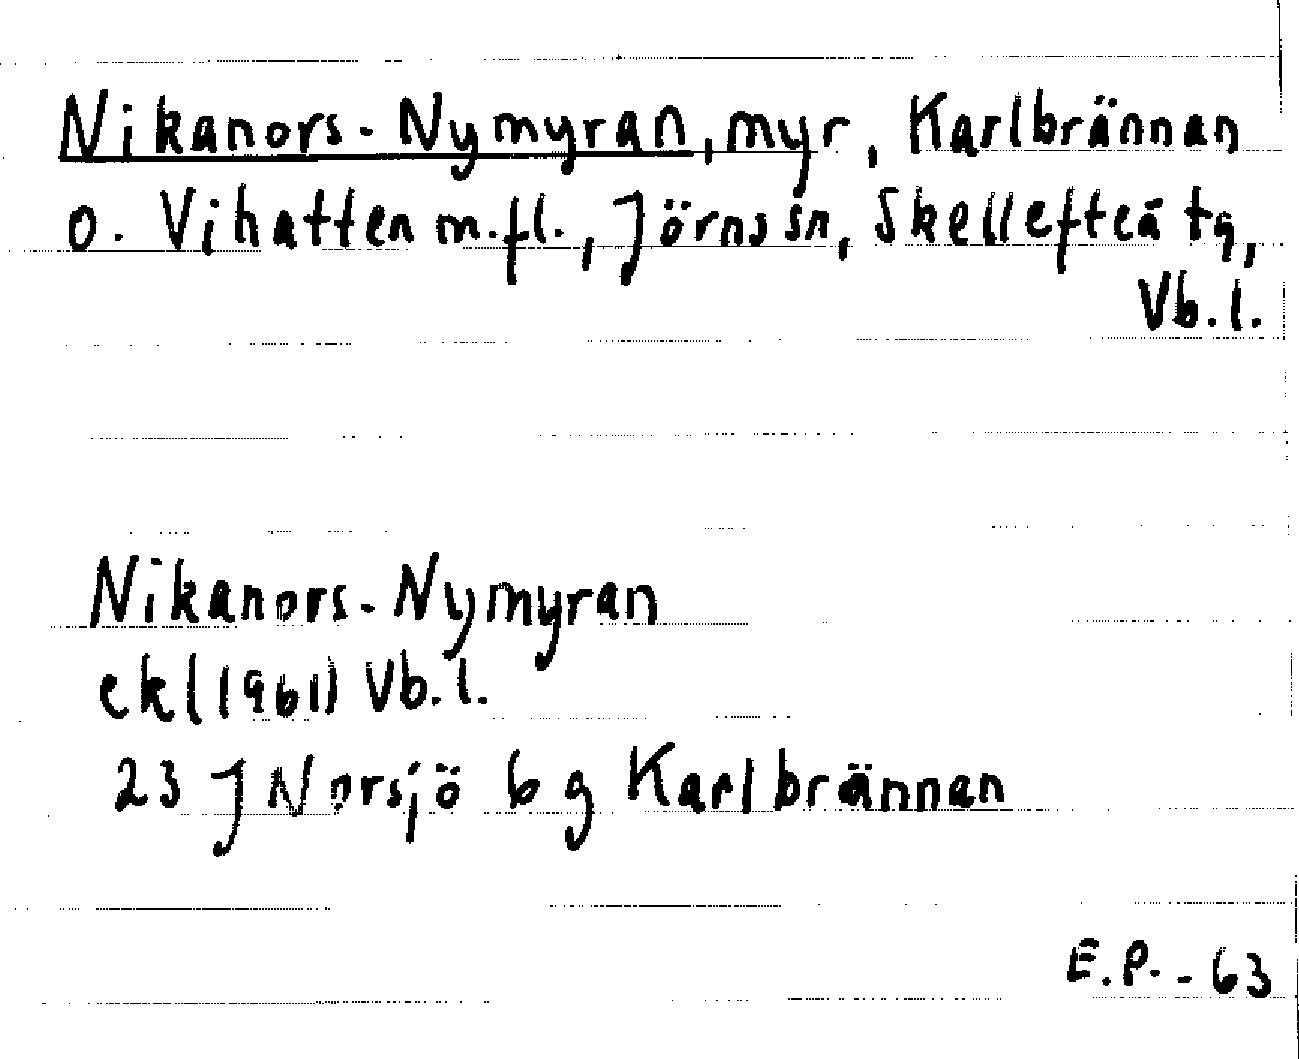 Nikanors-Nymyran, myr, Karlbrännan
o. Vihatten m.fl., Jörns sn, Skellefteå tg,
Vb.l.
Nikanors-Nymyran
ek (1961) Vb.l.
23 J Norsjö 6 g Karlbrännan
E.P.-63